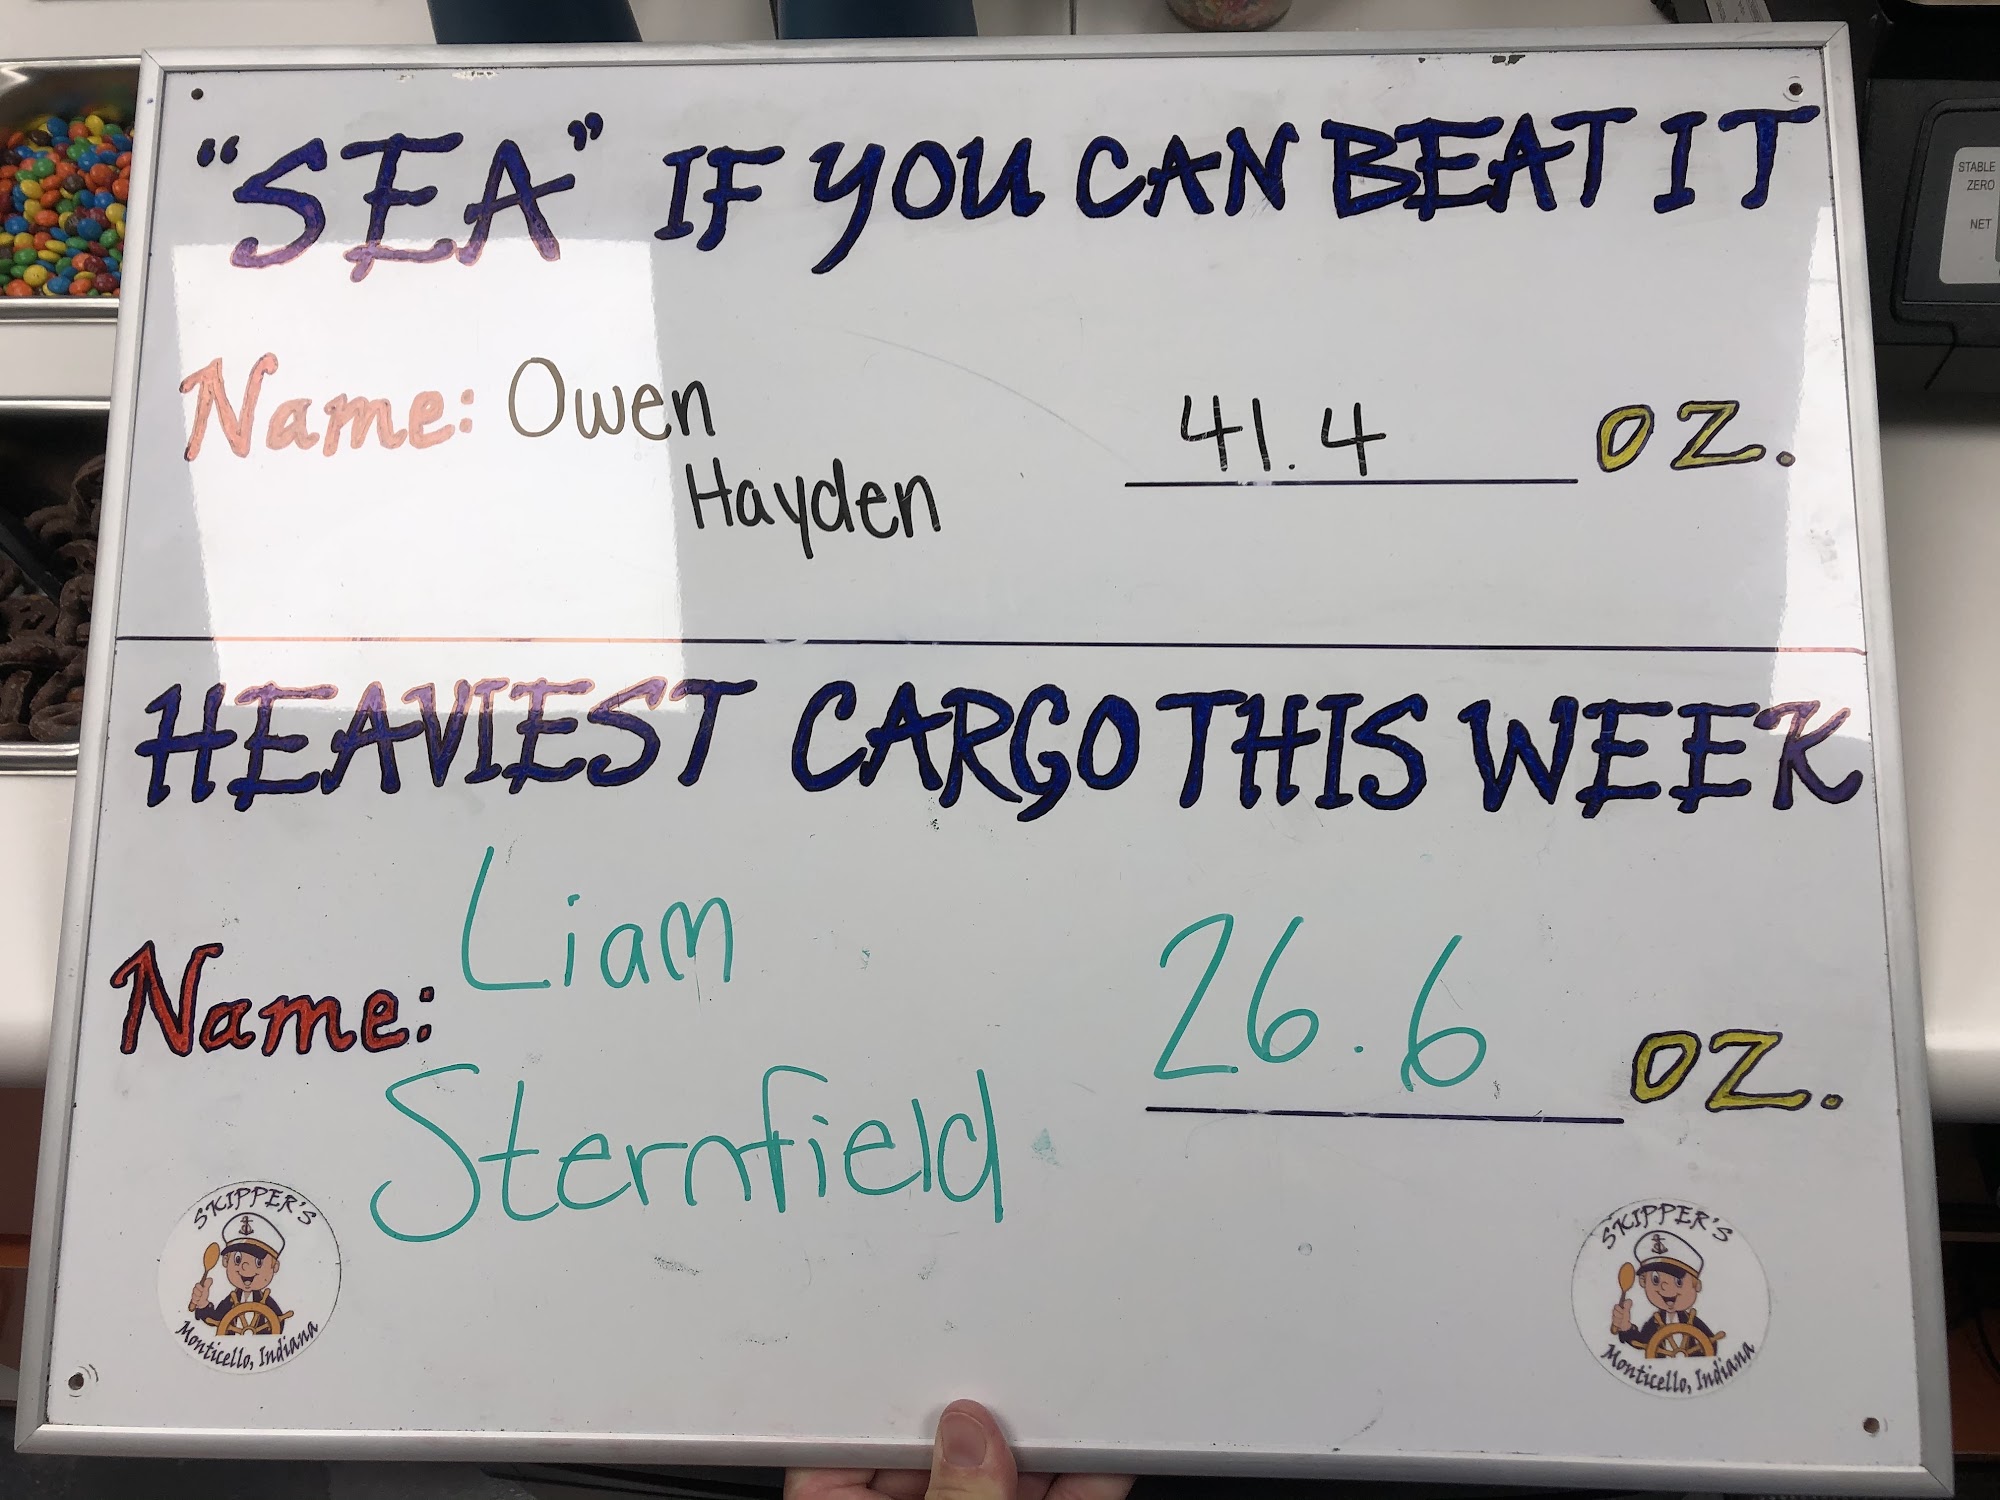 "SEA" IF YOU CAN BEAT IT
Name: Owen
Hayden
41.4 OZ.
HEAVIEST CARGO THIS WEEK
Name: Liam
Sternfield
26.6 OZ.
SKIPPER'S
Monticello, Indiana
SKIPPER'S
Monticello, Indiana
STABLE
ZERO
NET